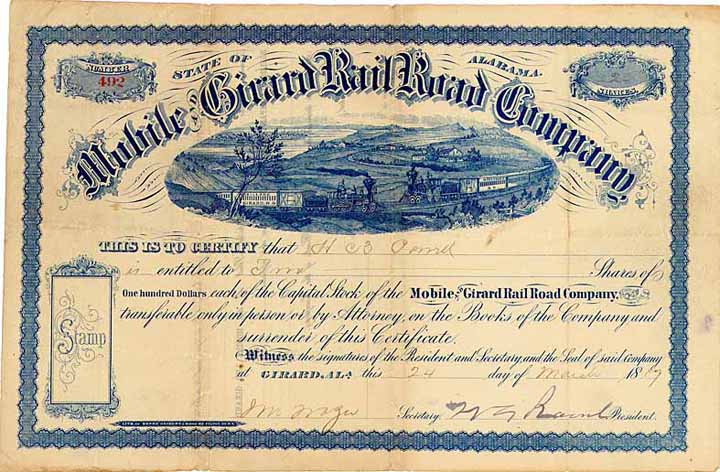 NUMBER
492
STATE OF ALABAMA.
SHARES.
Mobile and Girard Rail Road Company
GIRARD. R.R.
THIS IS TO CERTIFY that H B
is entitled to Shares of
One hundred Dollars each of the Capital Stock of the Mobile and Girard Rail Road Company.
transferable only in person or by Attorney, on the Books of the Company and
surrender of this Certificate.
Stamp
Witness the signatures of the President and Secretary, and the Seal of said Company
at GIRARD, ALA this 24 day of March 18
Secretary. President.